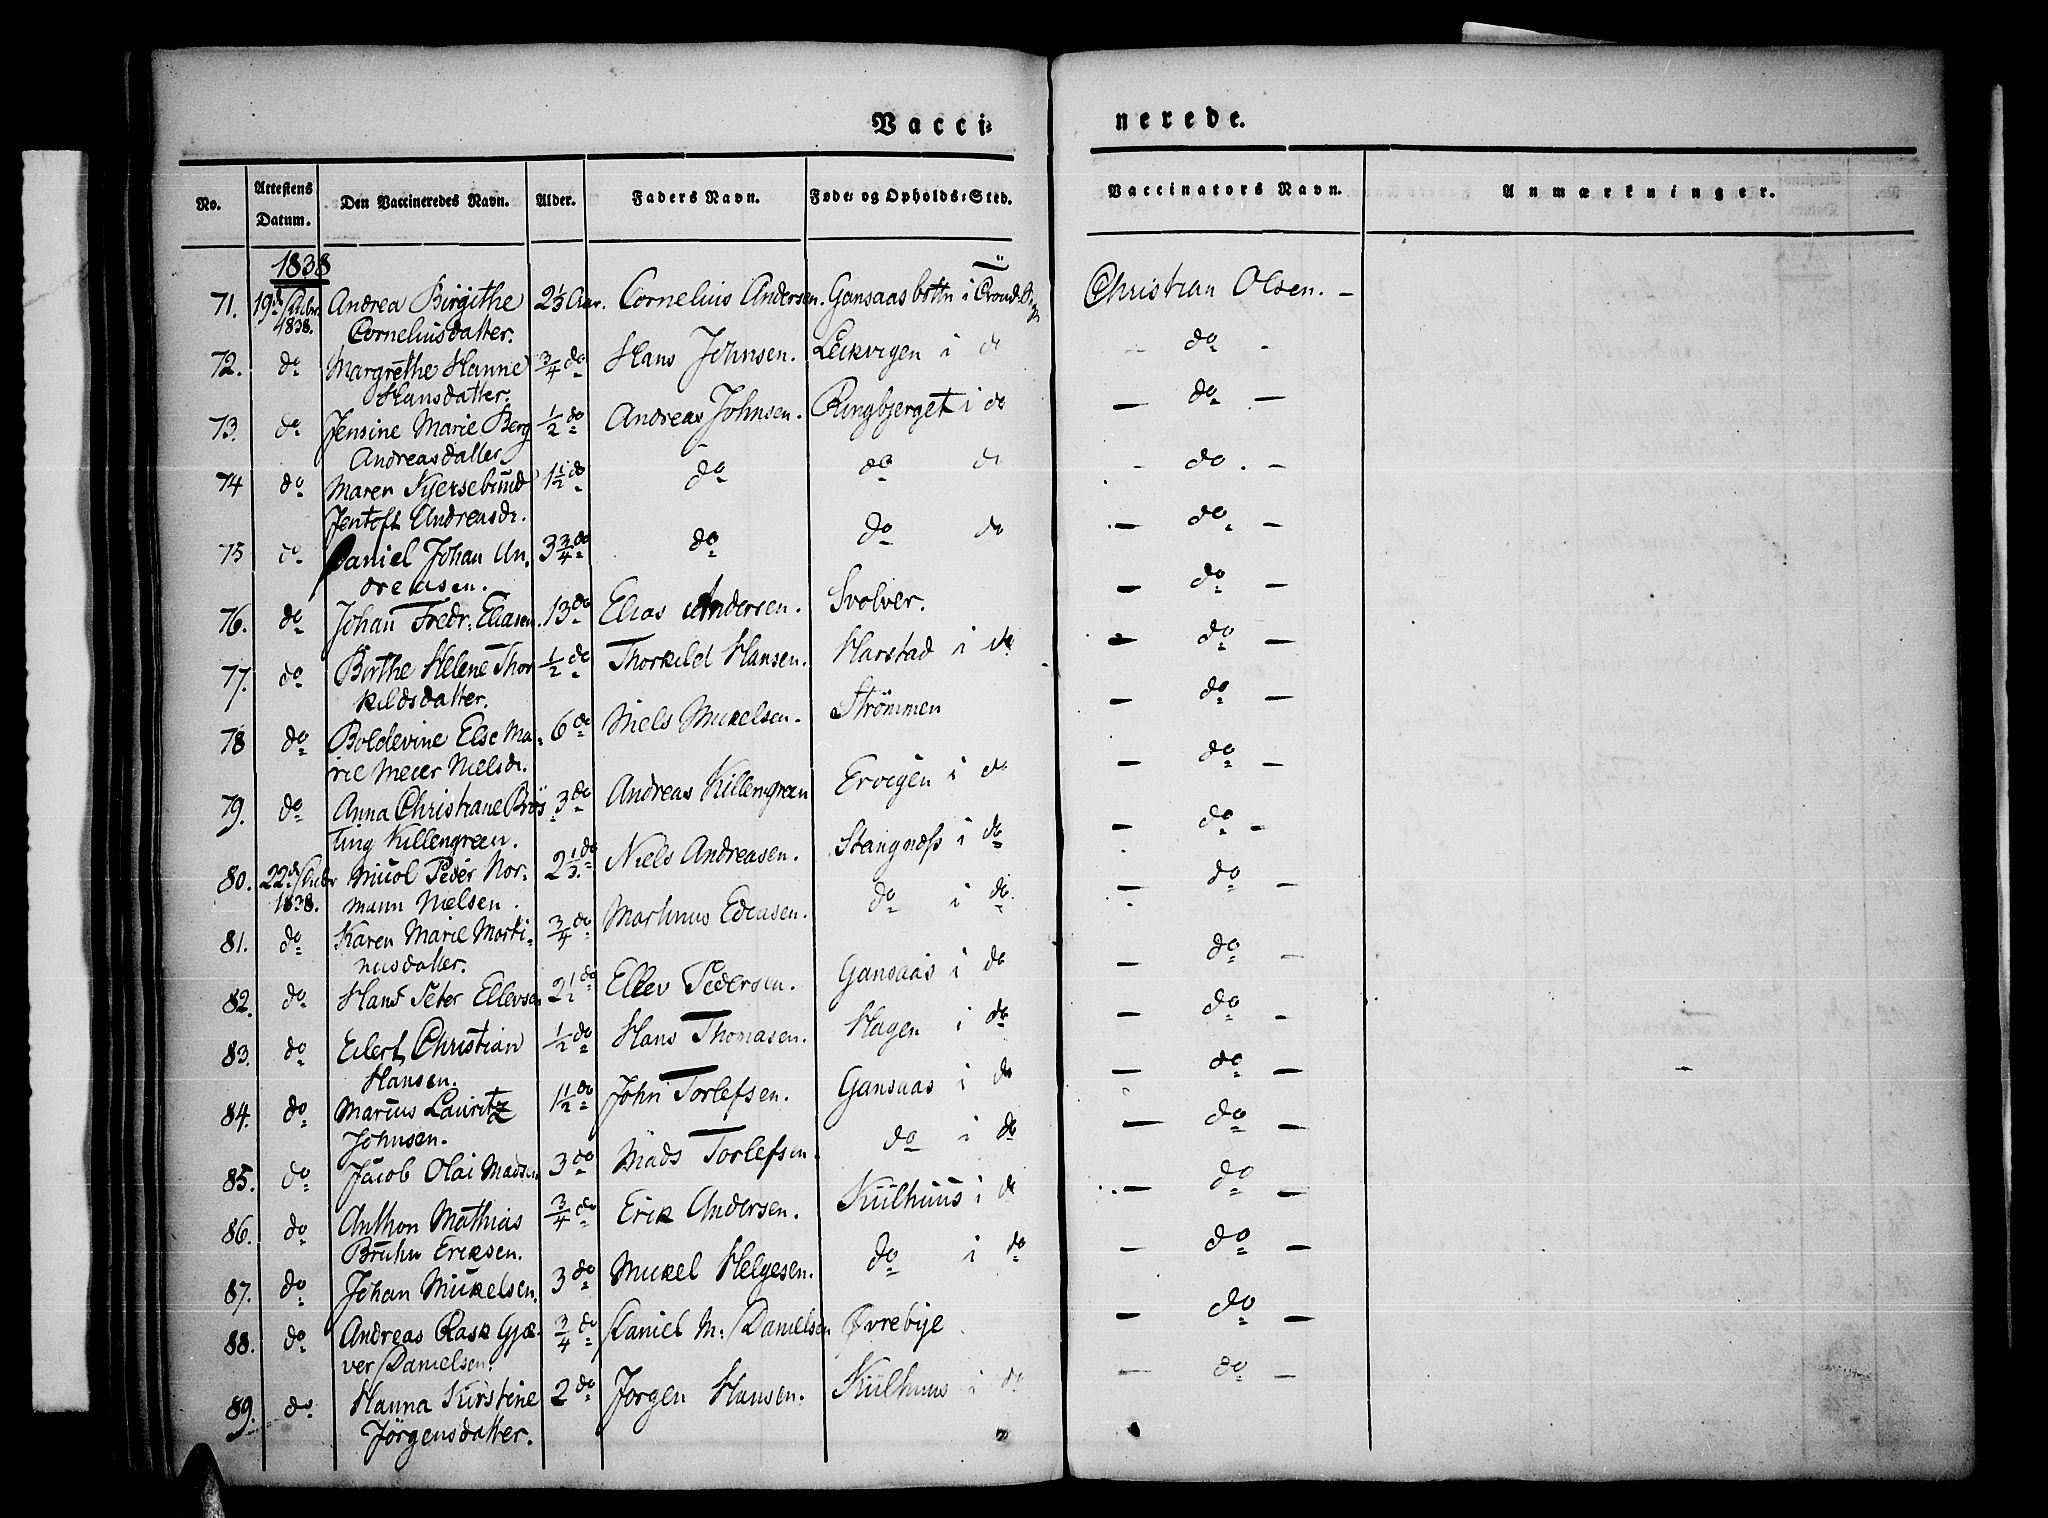 Vacci-
nerede.
No. Attestens Datum. Den Vaccineredes Navn. Alder. Faders Navn. Føde- og Opholds-Sted. Vaccinators Navn. Anmærkninger.
1838
71. 19de 1838. Andrea Birgithe 2 1/3 Aar. Cornelius Andersen. Gansaas i Christian Olsen. –
Corneliusdatter.
72. do Margrethe Hanne 3/4 do Hans Johnsen. Leikvigen i do – do –
Hansdatter.
73. do Jensine Marie Berg 1/2 do Andreas Johnsen. Ringbjerget i do – do –
Andreasdatter
74 do Maren 1 1/2 do do do do – do. –
Jentoft Andreasdr.
75 do Daniel Johan An- 3 3/4 do do do do – do –
dreasen.
76. do Johan Fredr: Eliasen. 13 do Elias Andersen. Svolver. – do –
77. do Birthe Helene Thor 1/2 do Thorkild Hansen. Harstad i do – do –
kildsdatter.
78 do Boldevine Else Ma- 6 do Niels Mikelsen. Strømmen – do –
rie Meier Nielsdr.
79. do Anna Christiane Brös 3 do Andreas Killengreen Ervigen i do – do –
ting Killengreen.
80. 22de 1838. Nicol Peder Nor- 2 1/3 do Niels Andreasen. Stangnæss i do – do –
mann Nielsen.
81. do Karen Marie Marti- 3/4 do Martinus do i do – do –
nusdatter.
82. do Hans Peter Ellevsen 2 1/2 do Ellev Pedersen. Gansaas i do – do –
83. do Eilert Christian 1/2 do Hans Thomasen. Hagen i do – do –
Hansen.
84. do Marius Lauritz 1 1/2 do John Torlefsen. Gansaas i do – do –
Johnsen.
85. do Jacob Olai Madsen 3 do Mads Torlefsen. do i do – do –
86. do Anthon Mathias 3/4 do Erik Andersen. Kiilhuus i do – do –
Bruhn Eriksen.
87. do Johan Mikelsen. 3 do Mikel Helgesen. do i do – do –
88. do Andreas Rask Gjæ- 3/4 do Daniel M: Danielsen Øvrebye – do –
ver Danielsen.
89. do Hanna Kirstine 2 do Jørgen Hansen. Kiilhuus i do – do –
Jörgensdatter.